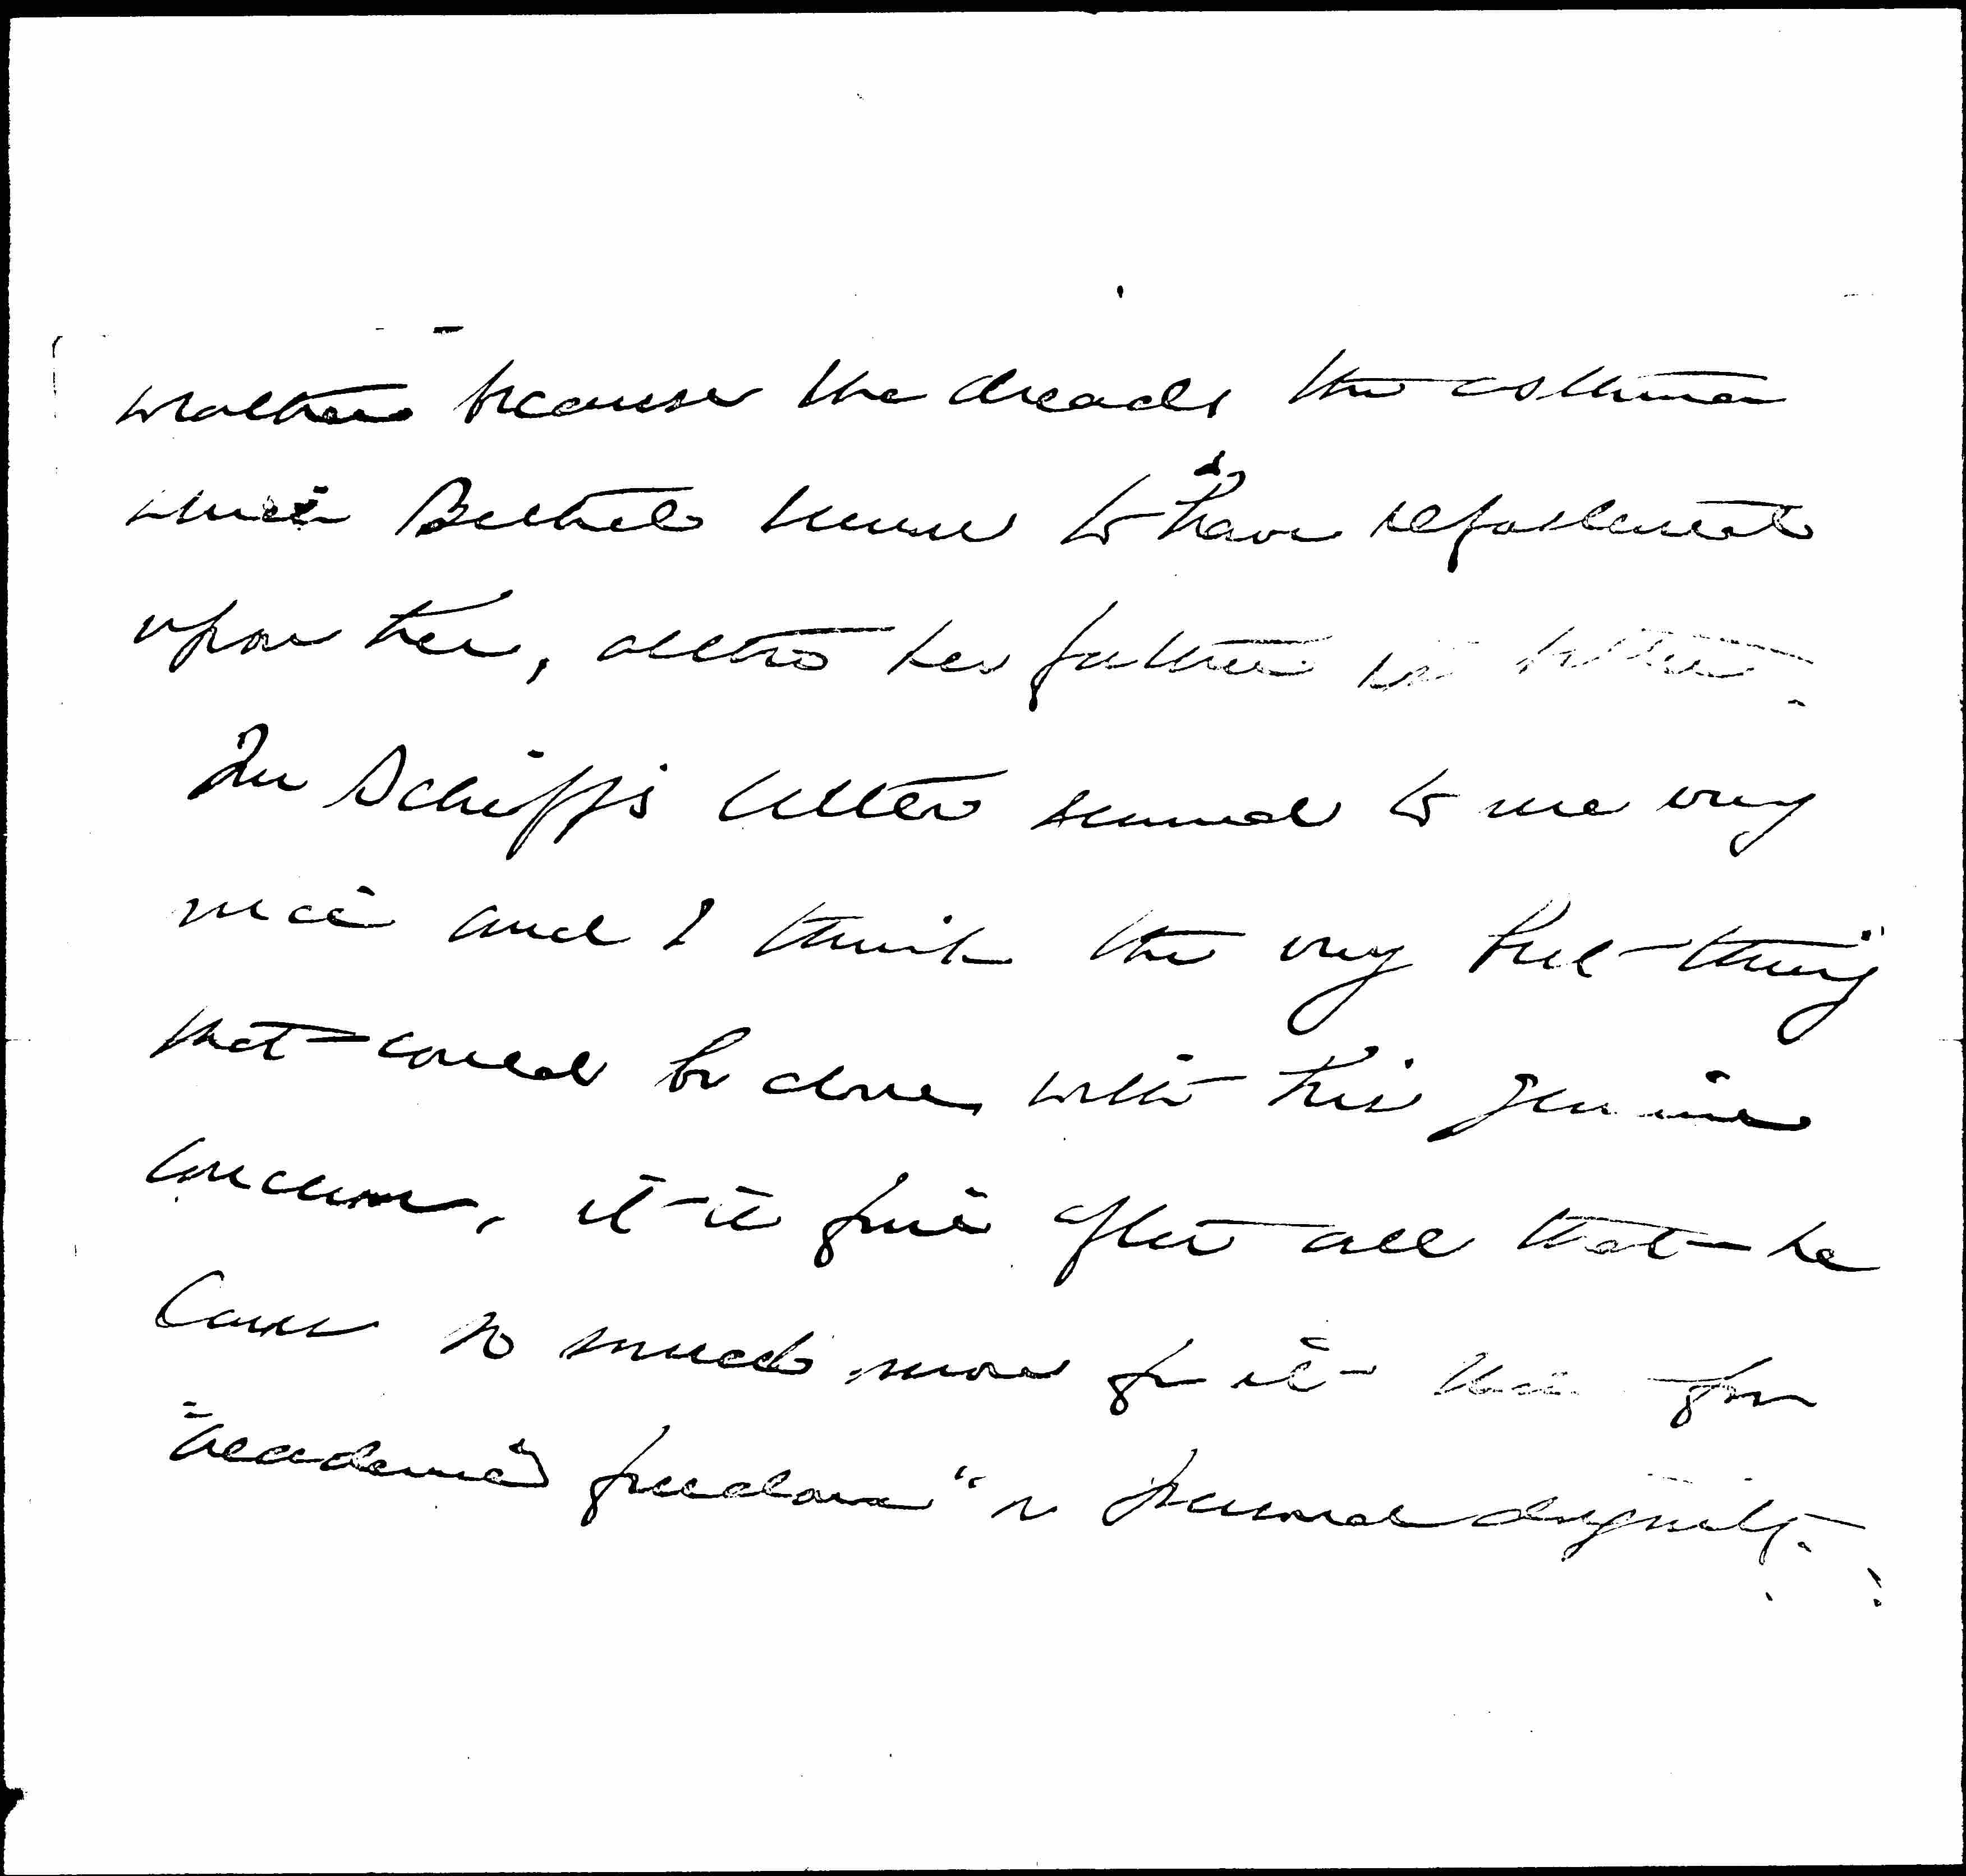 weather because she dreads the asthma
which Bethel seems to have
upon her, altho her father is better.
Mr Schiff's letter seemed to me very
nice and I think the very best thing
that could be done with his genuine
concern, it is fine after all that he
cares so much more for it than for
"academic freedom" or personal dignity.